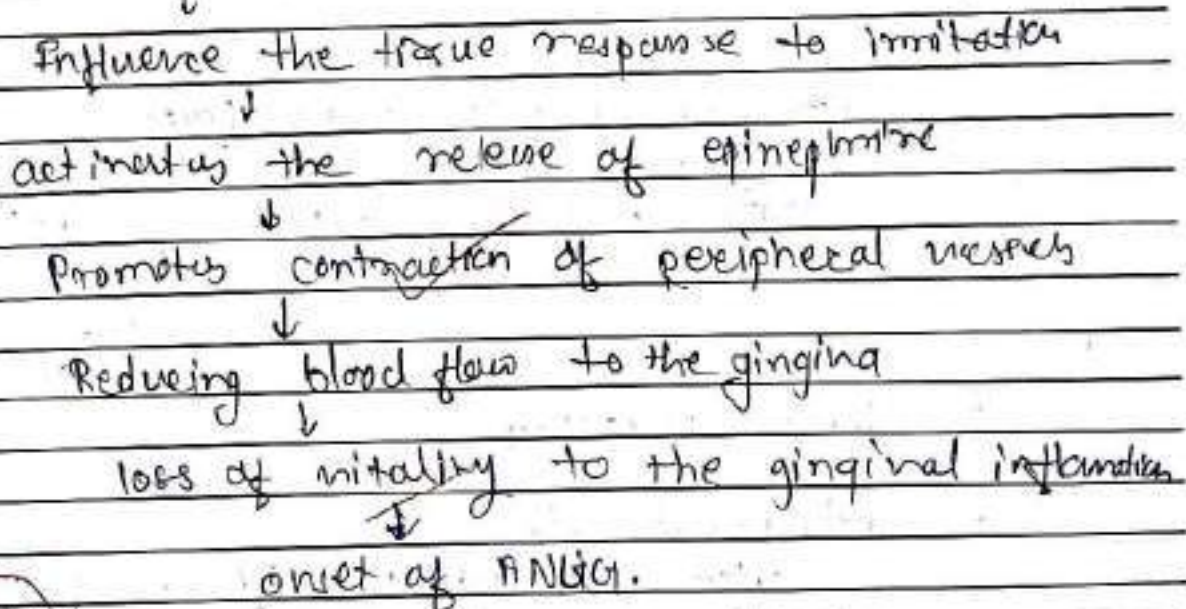 Influence the tissue response to irritation
↓
activates the release of epinephrine
↓
Promotes contraction of peripheral vessels
↓
Reducing blood flow to the gingiva
↓
loss of vitality to the gingival inflammation
↓
onset of ANUG.